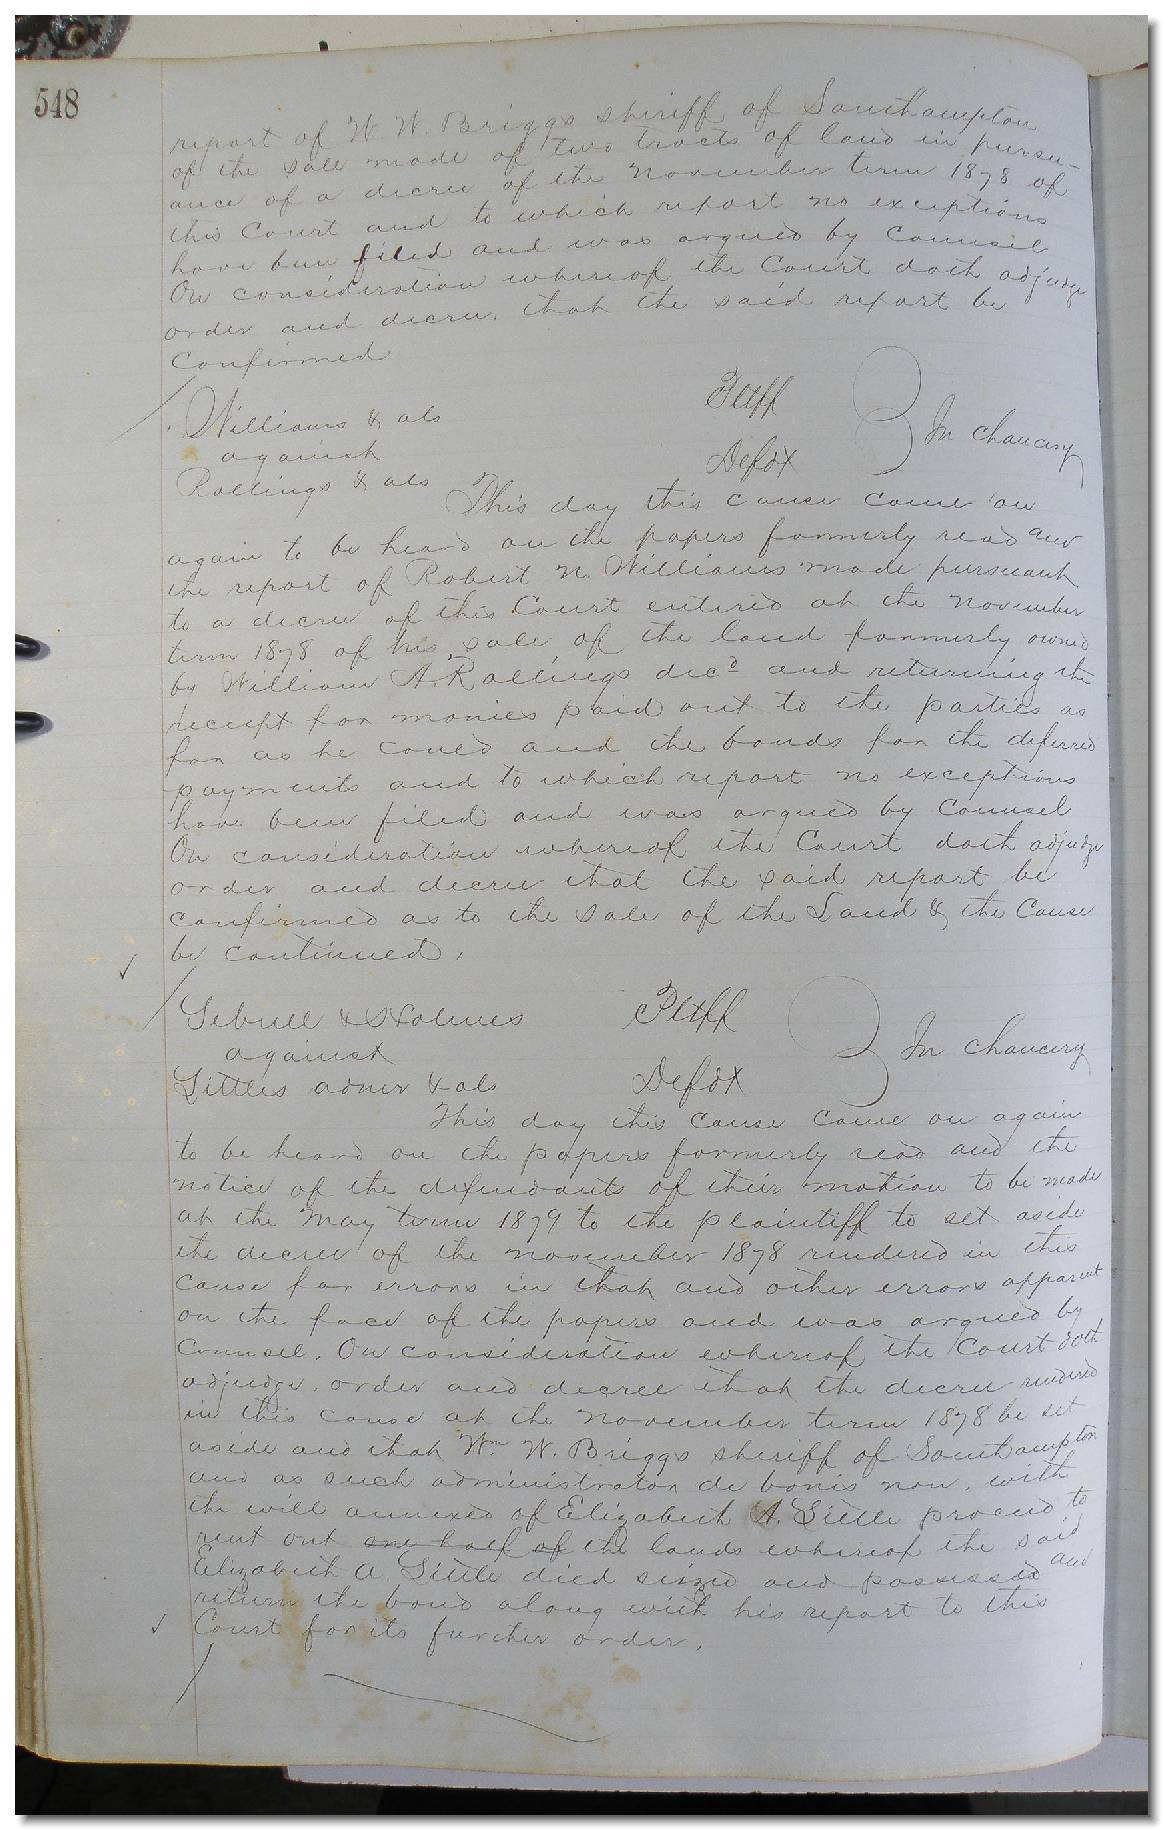 548
report of W. W. Briggs sheriff of Southampton
of the sale made of two tracts of land in pursu-
ance of a decree of the November term 1878 of
this Court and to which report no exceptions
have been filed and was argued by Counsel
On consideration whereof the Court doth adjudge
order and decree, that the said report be
Confirmed
Williams & als Pltff
against In Chancery
Rollings & als Defdt
This day this cause came on
again to be heard on the papers formerly read and
the report of Robert N. Williams made pursuant
to a decree of this Court entered at the November
term 1878 of his sale of the land formerly owned
by William A. Rollings decd and returning the
receipt for monies paid out to the parties as
far as he could and the bonds for the deferred
payments and to which report no exceptions
have been filed and was argued by Counsel
On consideration whereof the Court doth adjudge
order and decree that the said report be
confirmed as to the sale of the Land & the Cause
be continued.
Sebrell & Holmes Pltff
against In Chancery
Littles admr & als Defdt
This day this cause came on again
to be heard on the papers formerly read and the
notice of the defendants of their motion to be made
at the May term 1879 to the plaintiff to set aside
the decree of the November 1878 rendered in this
cause for errors in that and other errors apparent
on the face of the papers and was argued by
Counsel. On consideration whereof the Court doth
adjudge, order and decree that the decree rendered
in this cause at the November term 1878 be set
aside and that Wm W. Briggs sheriff of Southampton
and as such administrator de bonis non, with
the will annexed of Elizabeth A. Little proceed to
rent out one half of the lands whereof the said
Elizabeth A. Little died seized and possessed and
return the bond along with his report to this
Court for its further order.